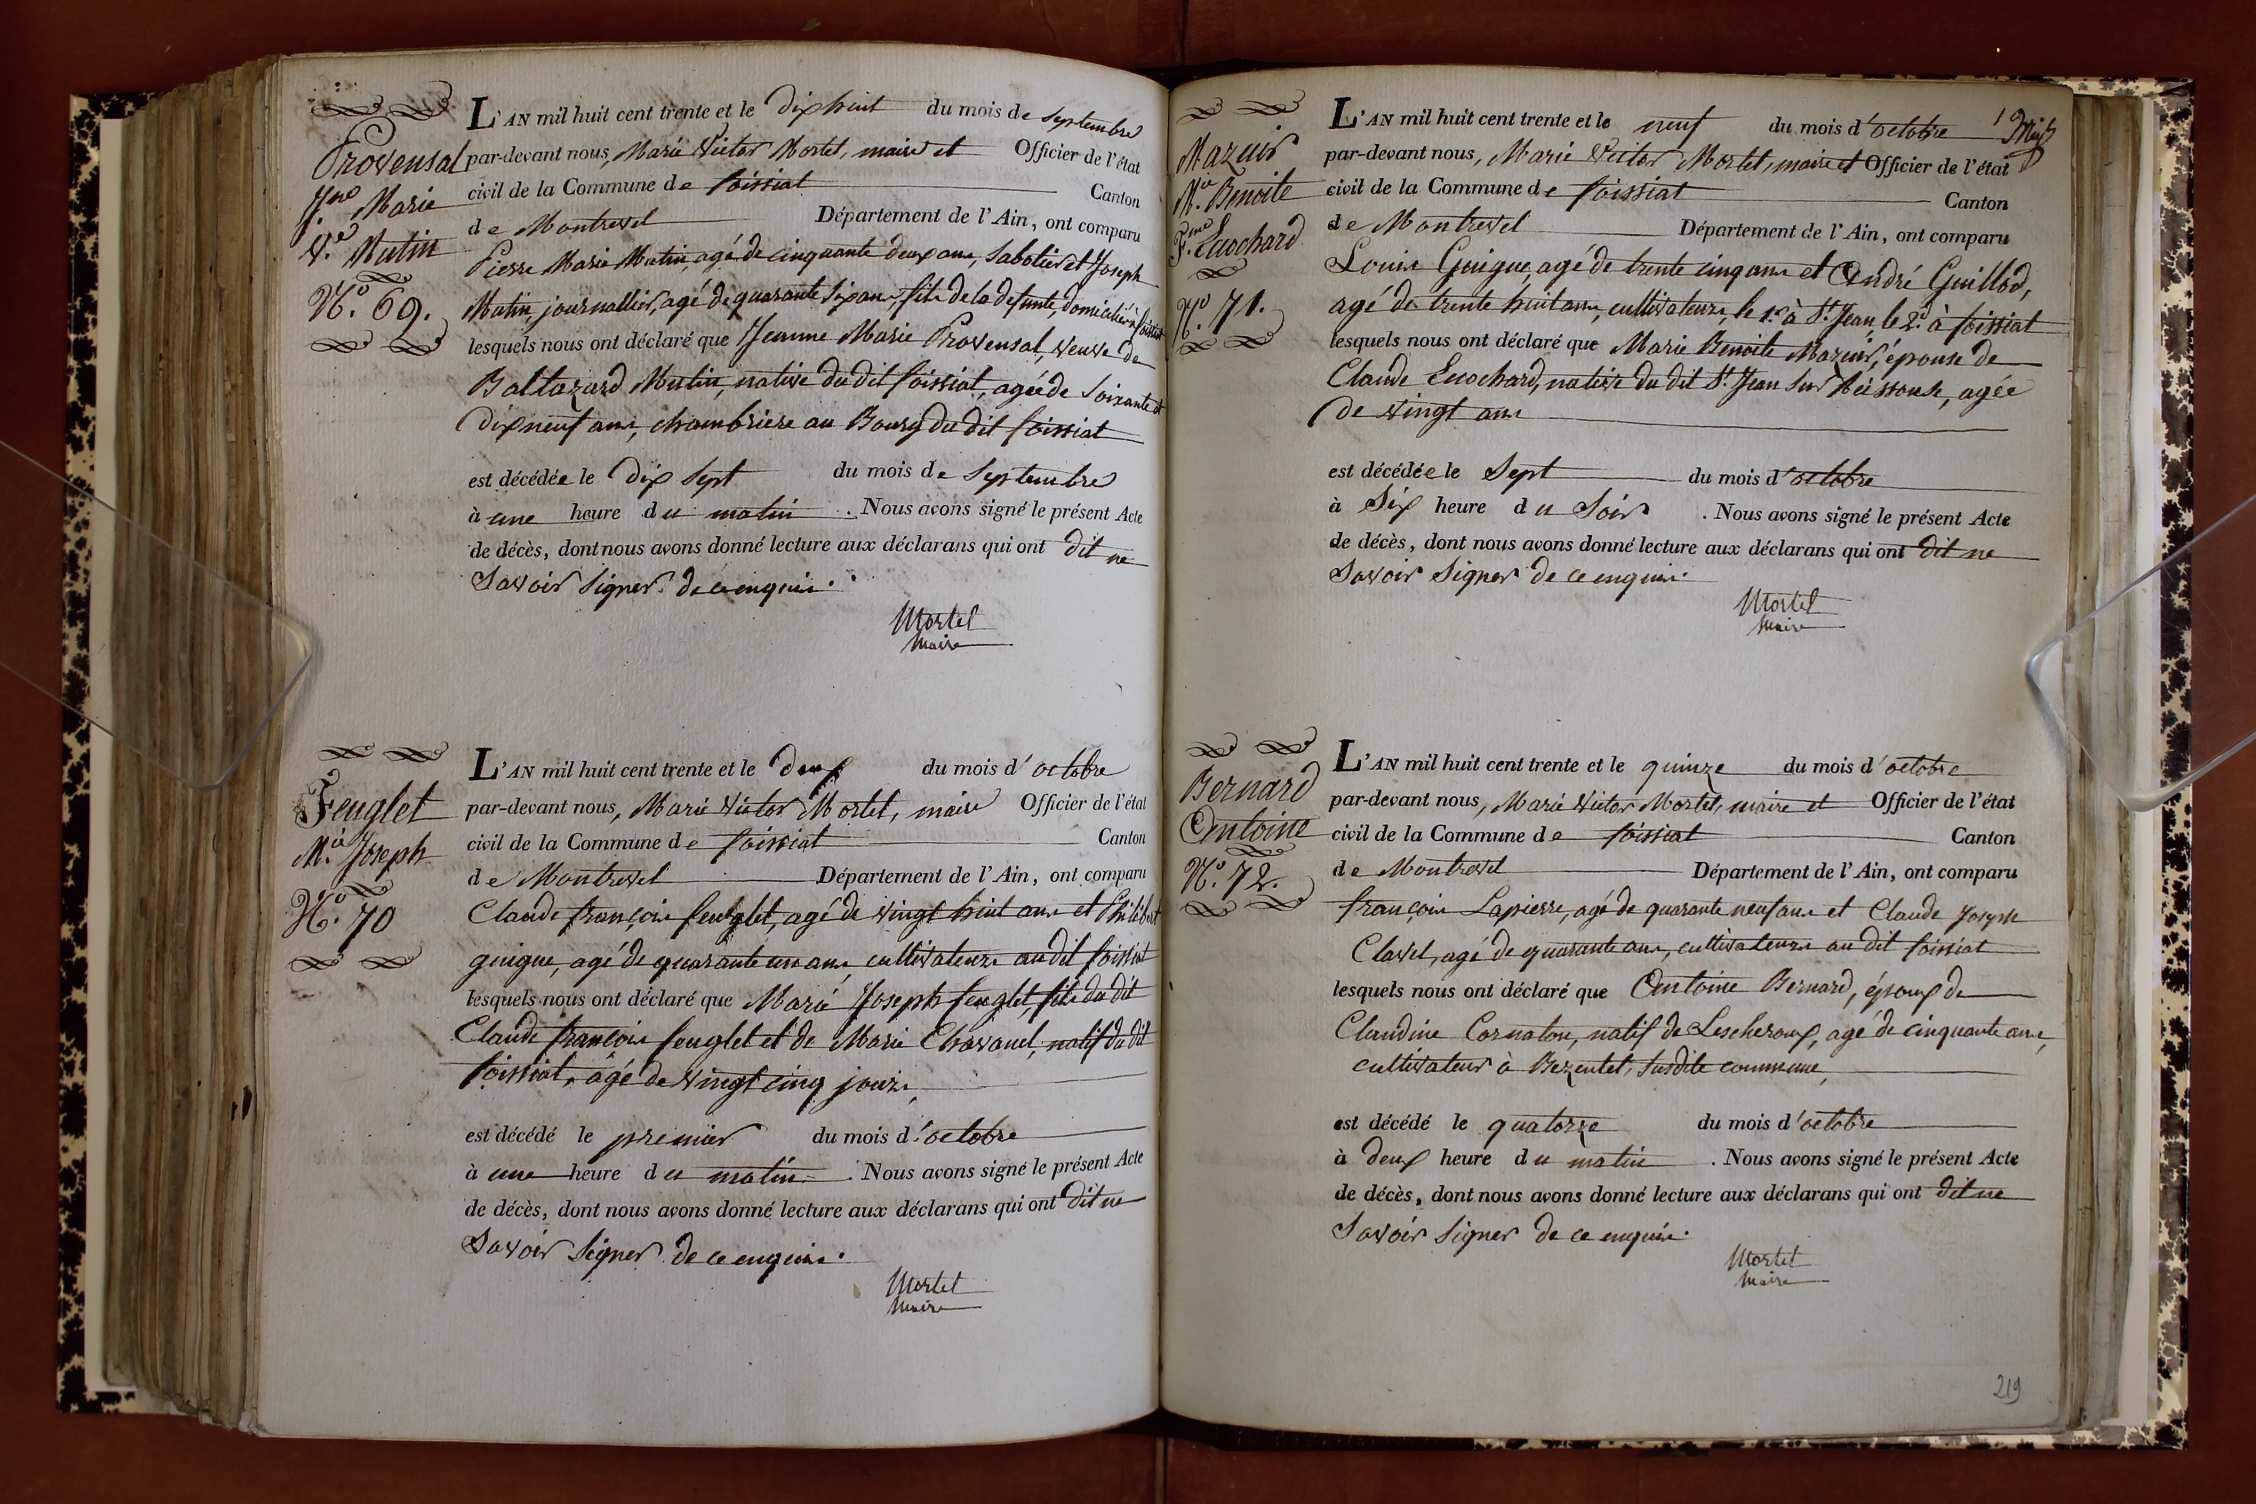 Provensal
J.ne Marie
V.e Mutin
N.o 69.
L'AN mil huit cent trente et le dix huit du mois de septembre
par-devant nous, Marie Victor Mortel, maire et Officier de l'état
civil de la Commune de foissiat Canton
de Montrevel Département de l'Ain, ont comparu
Pierre Marie Mutin, agé de cinquante deux ans, Sabotier et Joseph
Mutin, journallier, agé de quarante six ans, fils de la defunte, domiciliés à foissiat
lesquels nous ont déclaré que Jeanne Marie Provensal, veuve de
Baltazard Mutin, native du dit foissiat, agée de Soixante et
dix neuf ans, chambriere au Bourg du dit foissiat
est décédée le dix sept du mois de Septembre
à une heure du matin . Nous avons signé le présent Acte
de décès, dont nous avons donné lecture aux déclarans qui ont dit ne
Savoir Signer de ce enquis.
Mortel
maire
Feuglet
M.ie Joseph
N.o 70
L'AN mil huit cent trente et le deux du mois d'octobre
par-devant nous, Marie Victor Mortel, maire Officier de l'état
civil de la Commune de foissiat Canton
de Montrevel Département de l'Ain, ont comparu
Claude françois feuglet, agé de vingt huit ans et Philibert
guigue, agé de quarante un ans, cultivateurs au dit foissiat
lesquels nous ont déclaré que Marie Joseph feuglet, fils du dit
Claude françois feuglet et de Marie Chavanel, natif du dit
foissiat, âgé de vingt cinq jours,
est décédé le premier du mois d'octobre
à une heure du matin . Nous avons signé le présent Acte
de décès, dont nous avons donné lecture aux déclarans qui ont dit ne
Savoir Signer de ce enquis.
Mortel
maire
Mazuir
M.ie Benoite
F.me Euochard
N.o 71.
L'AN mil huit cent trente et le neuf du mois d'octobre
par-devant nous, Marie Victor Mortel, maire et Officier de l'état
civil de la Commune de foissiat Canton
de Montrevel Département de l'Ain, ont comparu
Louis Guigue, agé de trente cinq ans et André Guillod,
agé de trente huit ans, cultivateurs, le 1.er à S.t Jean, le 2.d à foissiat
lesquels nous ont déclaré que Marie Benoite Mazuir, épouse de
Claude Euochard, native du dit S.t Jean Sur Reissouse, agée
de vingt ans
est décédée le Sept du mois d'octobre
à Six heure du Soir . Nous avons signé le présent Acte
de décès, dont nous avons donné lecture aux déclarans qui ont dit ne
Savoir Signer de ce enquis.
Mortel
maire
Bernard
Antoine
N.o 72.
L'AN mil huit cent trente et le quinze du mois d'octobre
par-devant nous, Marie Victor Mortel, maire et Officier de l'état
civil de la Commune de foissiat Canton
de Montrevel Département de l'Ain, ont comparu
françois Lapierre, agé de quarante neuf ans et Claude Joseph
Clavel, agé de quarante ans, cultivateurs au dit foissiat
lesquels nous ont déclaré que Antoine Bernard, époux de
Claudine Cornaton, natif de Lescheroux, agé de cinquante ans,
cultivateur à Bezentet, susdite commune,
est décédé le quatorze du mois d'octobre
à deux heure du matin . Nous avons signé le présent Acte
de décès, dont nous avons donné lecture aux déclarans qui ont dit ne
Savoir Signer de ce enquis.
Mortel
maire
219